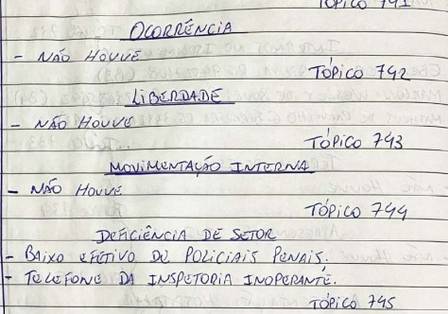 TÓPICO 741
OCORRÊNCIA
- NÃO HOUVE
TÓPICO 742
LIBERDADE
- NÃO HOUVE
TÓPICO 743
MOVIMENTAÇÃO INTERNA
- NÃO HOUVE
TÓPICO 744
DEFICIÊNCIA DE SETOR
- BAIXO EFETIVO DE POLICIAIS PENAIS.
- TELEFONE DA INSPETORIA INOPERANTE.
TÓPICO 745